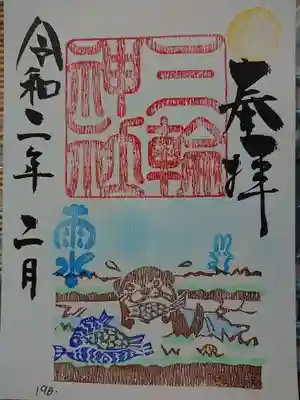 奉拝
三輪
神社
令和二年 二月
雨水
198.